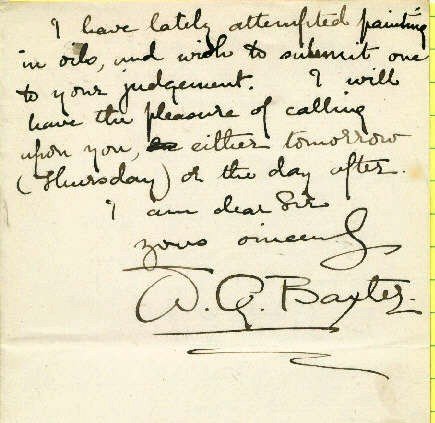 I have lately attempted painting
in oils, and wish to submit one
to your judgement. I will
have the pleasure of calling
upon you, either tomorrow
(Thursday) or the day after.
I am dear Sir
yours sincerely
W. G. Baxter.